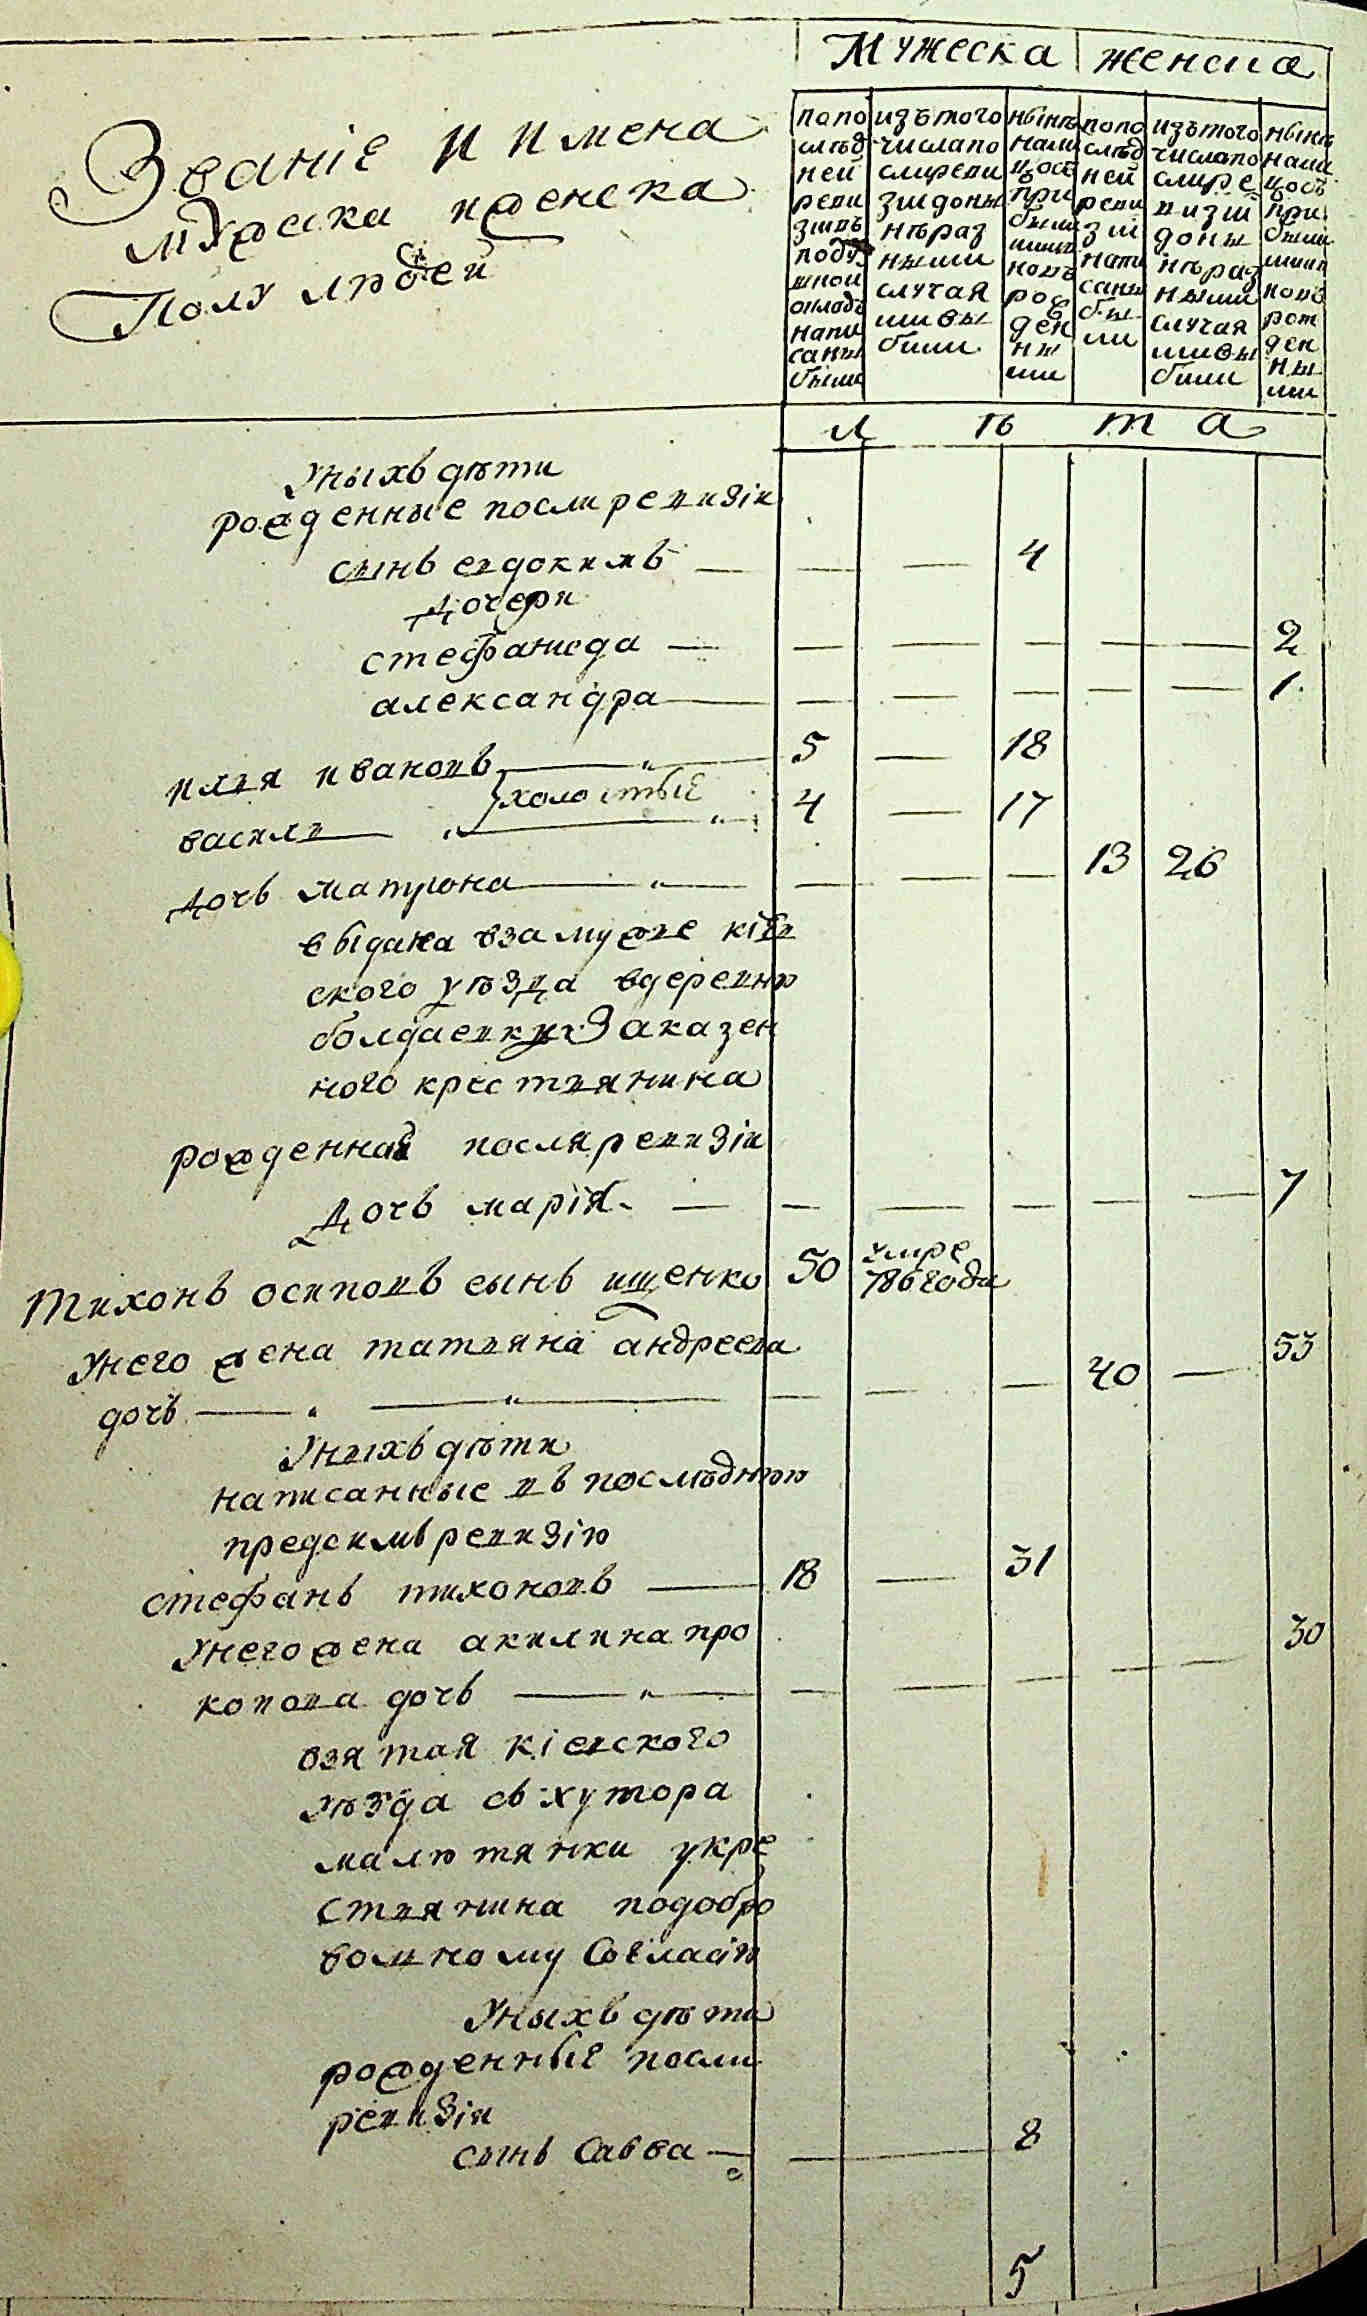 Мужеска женска
Званіе и имена
мужеска иженска
Полу людей
попо
слѣд
ней
реви
зіивъ
поду
шной
окладъ
напи
саны
были
изътого
числапо
слиреви
зіидоны
нѣраз
ными
случая
мивы
были
нынѣ
нали
цосъ
при
былы
мии
новъ
рож
ден
ны
ми
попо
слѣд
ней
реви
зіи
напи
саны
бы
ли
изътого
числапо
слире
визіи
доны
нѣраз
ными
случая
мивы
были
нынѣ
нали
цосъ
при
былы
мии
новъ
рож
ден
ны
ми
л ѣ т а
Уныхъ дѣти
рожденные послиревизіи
сынъ евдокимъ — — — 4
Дочери
стефанида — — — — — — 2
александра — — — — — — 1
илья ивановъ — " — 5 — 18
холостые
василь — " — " — 4 — 17
Дочь матрона — " — — — — 13 26
выдана взамуже кіев
ского уѣзда вдеревню
болдаевку Заказен
ного крестьянина
рожденная посляревизіи
Дочь марія — — — — — — 7
Тихонъ осиповъ сынъ ищенко 50 умре
786годи
Унего жена татьяна андреева 53
дочь — " — " — — — — 40 —
Уныхъ дѣти
написанные въ послѣднюю
предсимъревизію
стефанъ тихоновъ — 18 — 31
Унегожена акилина про 30
копова дочь — " — — — — — —
взятая кіевского
уѣзда съ хутора
малютянки укре
стьянина подобро
вольному Согласію
Уныхъ дѣти
рожденные посли
ревизіи
сынъ Савва — — 8
5